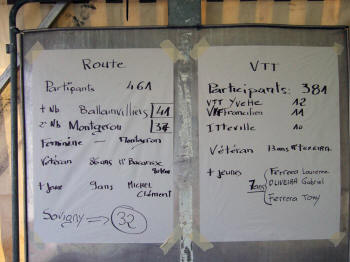 Route
Partipants 461
+ Nb Ballainvilliers 41
2e Nb Montgeron 37
Feminine — Montgeron
Vétéran 86ans Mr
+ Jeune 9ans MICHEL
Clément
Savigny => 32
VTT
Participants: 381
VTT Yvette 12
VTT Francilien 11
Itteville 10
Vétéran
+ jeunes 7ans Ferrera Laurenne
OLIVEIRA Gabriel
Ferrera Tony